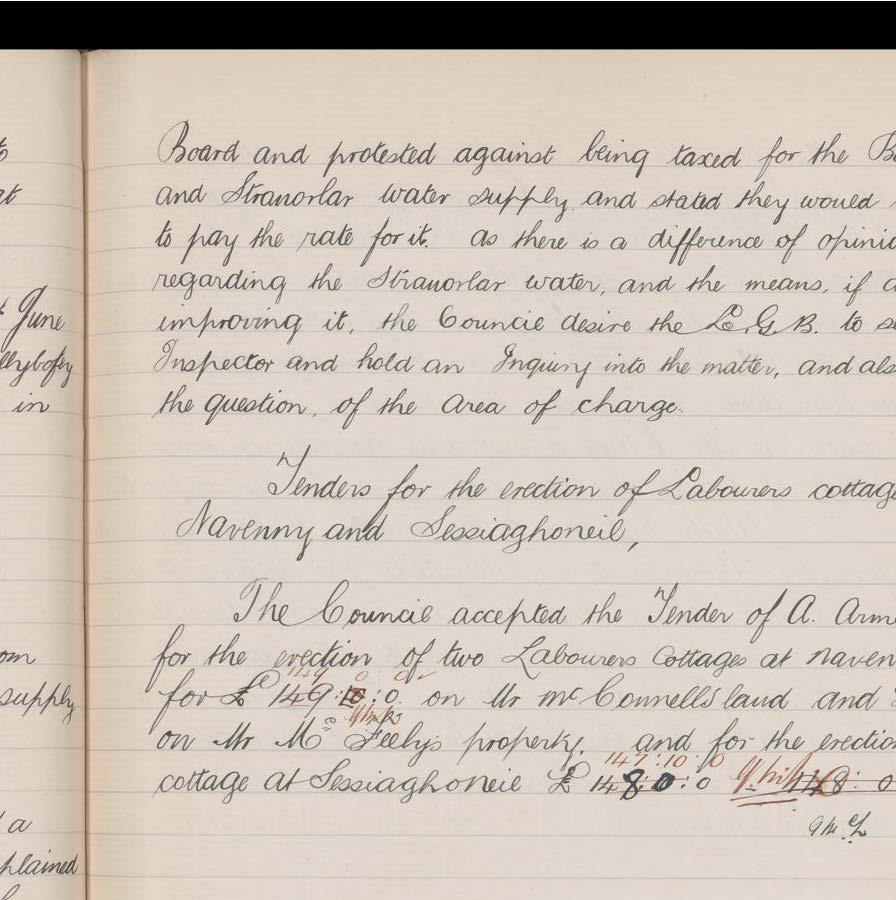 t
at
June
llybofey
in
om
supply
a
plained
Board and protested against being taxed for the B
and Stranorlar water supply and stated they would
to pay the rate for it. as there is a difference of opinio
regarding the Stranorlar water, and the means, if a
improving it, the Council desire the L.G.B. to se
Inspector and hold an Inquiry into the matter, and als
the question, of the area of charge.
Tenders for the erection of Labourers cottage
Navenny and Sessiaghoneil,
The Council accepted the Tender of A. Arm
for the erection of two Labourers Cottages at Naven
149 0 0
for £ 149:10:0 on Mr McConnell's land and
on Mr McFeely's property. and for the erection
147:10:0
cottage at Sessiaghoneil £ 148:0:0 148: 0